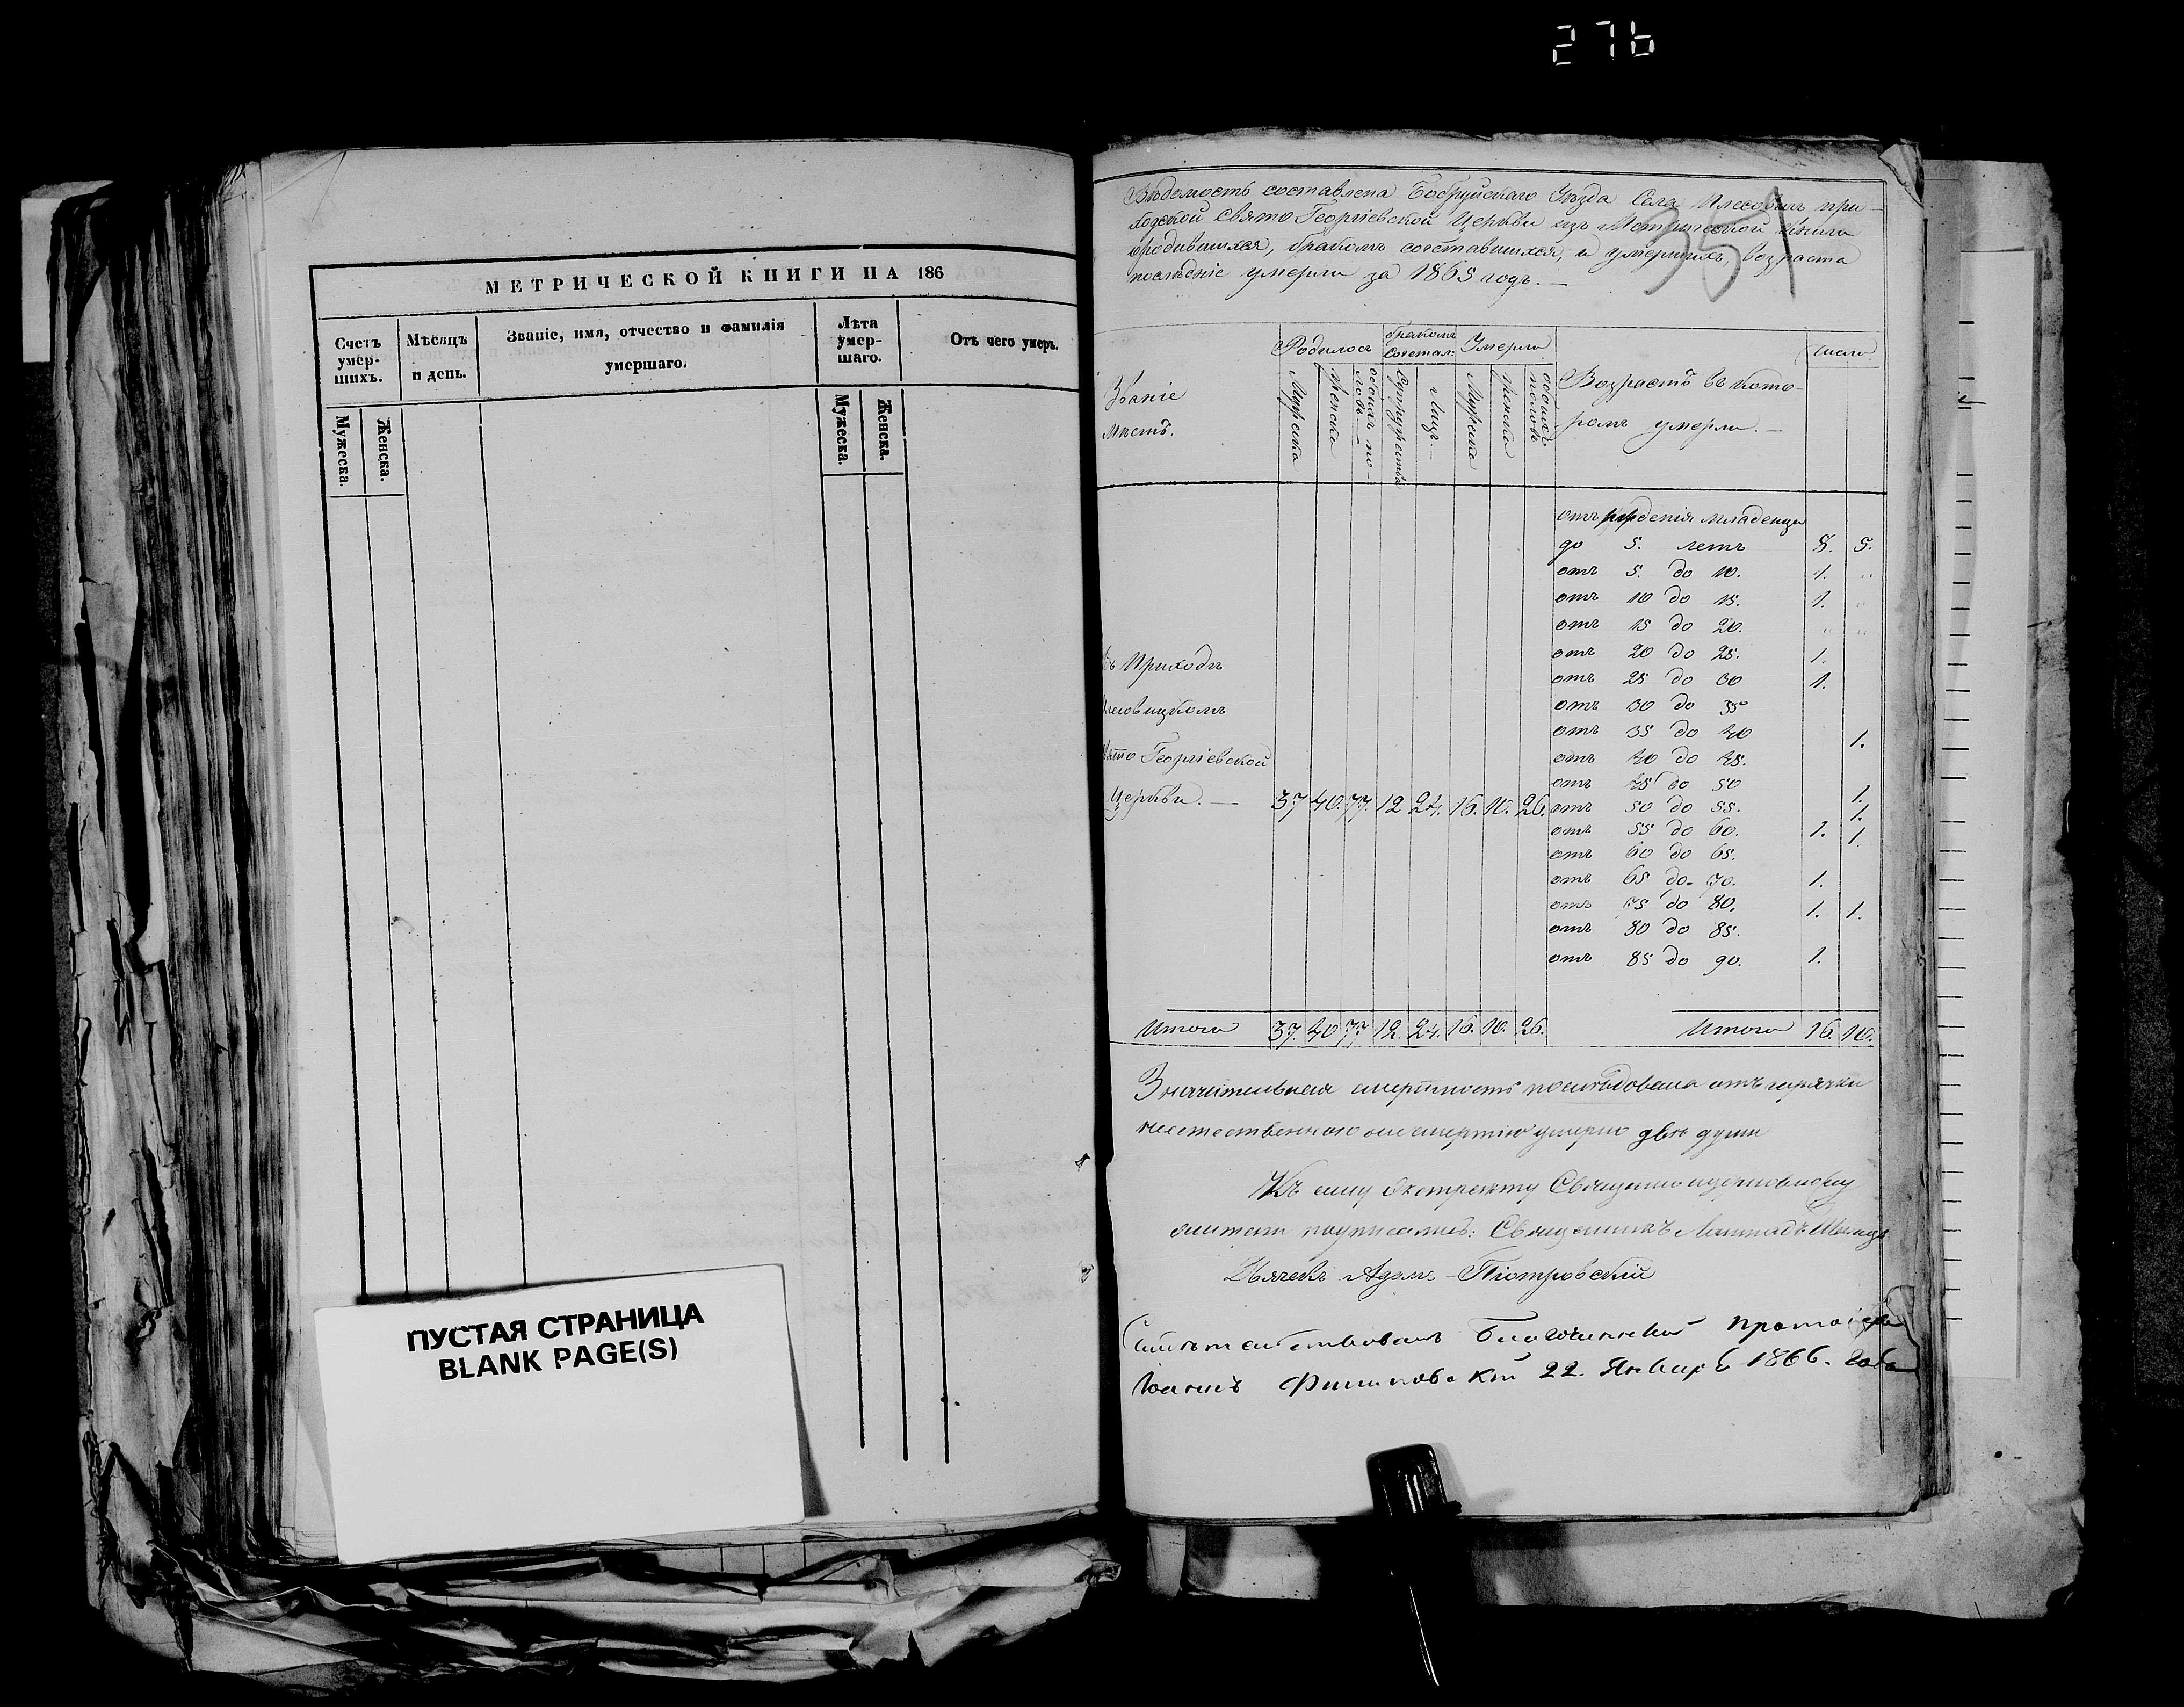 276
МЕТРИЧЕСКОЙ КНИГИ НА 186
Счетъ умер-шихъ.
Мѣсяцъ и день.
Званіе, имя, отчество и фамилія умершаго.
Лѣта умер-шаго.
Отъ чего умеръ.
Мужеска.
Женска.
Мужеска.
Женска.
ПУСТАЯ СТРАНИЦА
BLANK PAGE(S)
351
Вѣдомость составлена Бобруйскаго Уѣзда Села при-
ходской Свято Георгіевской Церкви изъ Метрической книги
о родившихся, бракомъ сочетавшихся, и умершихъ, возраста
послѣдніе умерли за 1865 годъ. —
Званіе
мѣстъ.
Родилось
бракомъ
Сочетал:
Умерло
Мужеска
Женска
обоихъ по-
ловъ
Супружества
Лицъ —
Мужеска
Женска
обоихъ
половъ
Возрастъ въ кото-
ромъ умерли. —
число
отъ рожденія младенцы
до 5. летъ 8. 5.
отъ 5. до 10. 1. "
отъ 10 до 15. 1. "
отъ 15 до 20. " "
отъ 20 до 25. 1.
отъ 25 до 30 1.
отъ 30 до 35
отъ 35 до 40 1.
отъ 40 до 45.
отъ 45 до 50 1.
отъ 50 до 55. 1.
отъ 55 до 60. 1. 1.
отъ 60 до 65.
отъ 65 до 70. 1.
отъ 75 до 80. 1. 1.
отъ 80 до 85.
отъ 85 до 90. 1.
Въ Приходѣ
Георгіевской
Церкви. — 37 40. 77. 12 24. 16. 10. 26.
Итого 37. 40 77 12. 24. 16. 10. 26. Итого 16. 10.
Значительная смертность послѣдовала отъ горячки
умерло двѣ души
Къ сему Экстракту Священно церковно
подписались: Священникъ
Дьячекъ Адамъ Піотровскій
Свидѣтельствовалъ Благочинный Протоіерей
Іоаннъ 22. Января 1866. года